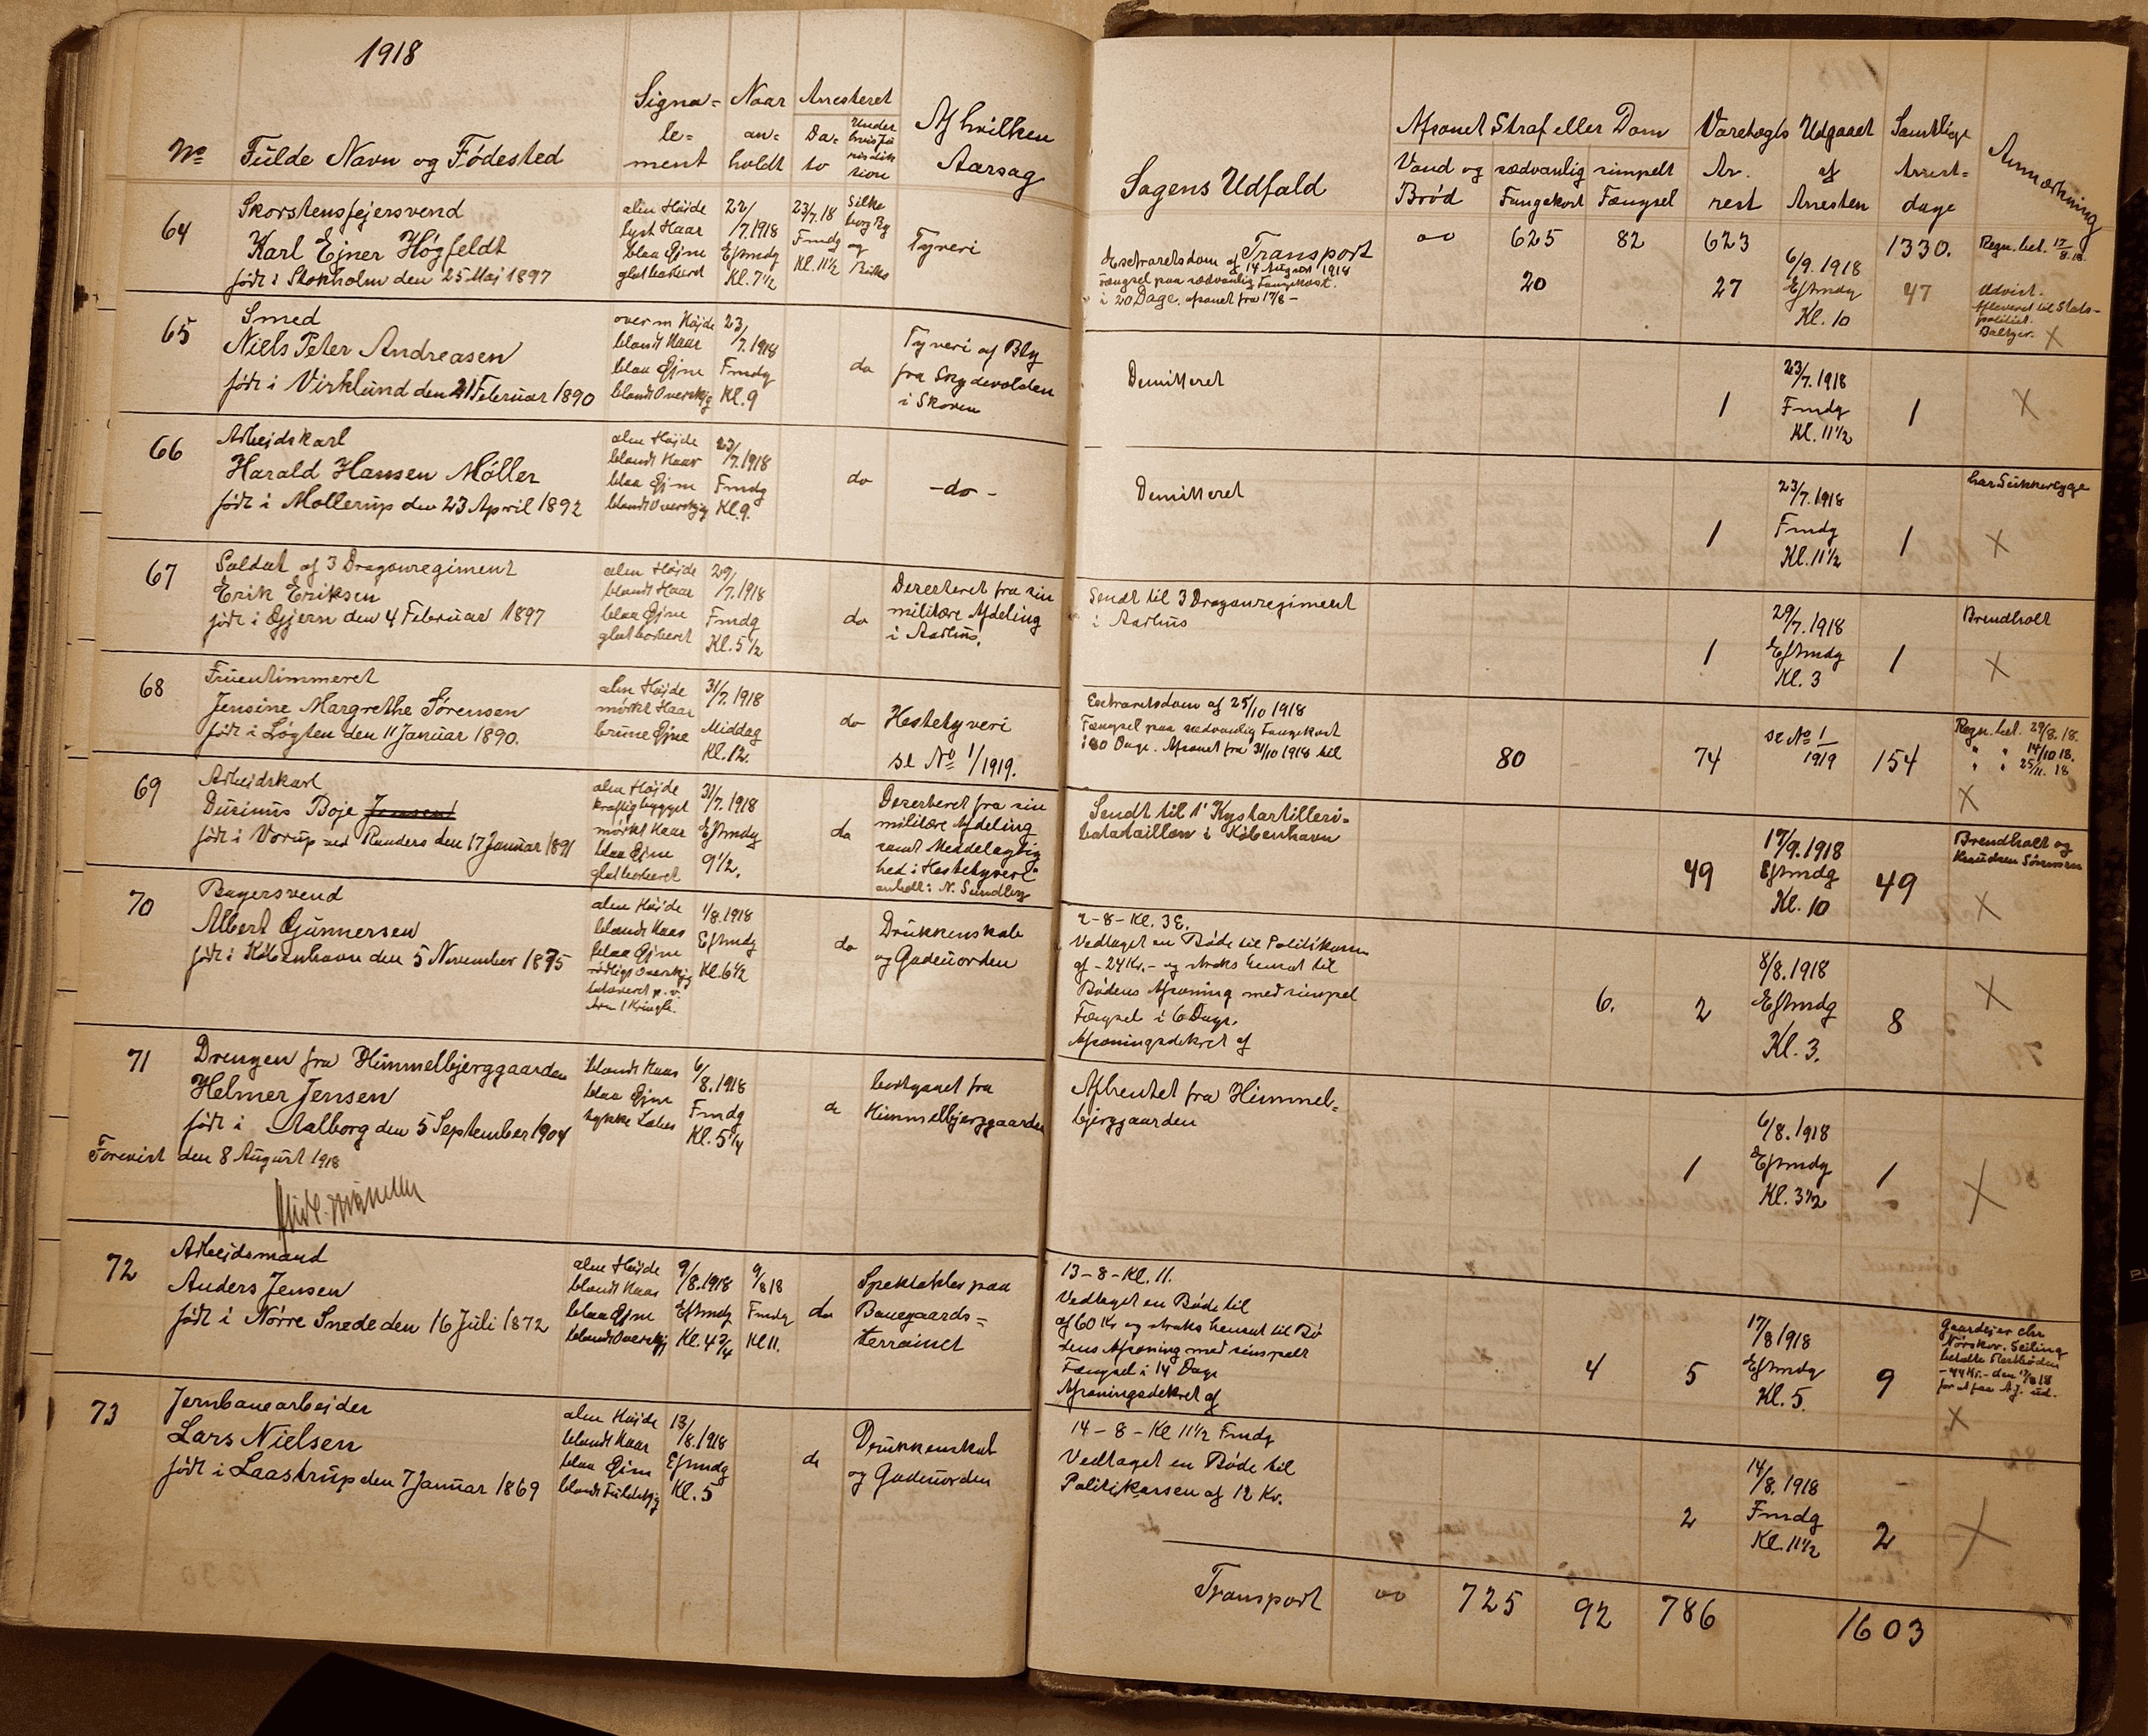 1918
No Fulde Navn og Fødested
Signa=
le=
ment
Naar
an=
holdt
Arresteret
Da=
to
Under
hvis Ju
risdik
sion
Af hvilken
Aarsag
64
Skorstensfejersvend
Karl Ejner Högfeldt
født i Stokholm den 25 Maj 1897
alm Højde
lyst Haar
blaa Øjne
glatbarberet
22/
/7.1918
Eftmdg
Kl. 7½
23/7.18
Fmdg
Kl. 11½
Silke
borg By
og
Birks
Tyveri
65
Smed
Niels Peter Andreasen
født i Virklund den 21 Februar 1890
over m Højde
blondt Haar
blaa Øjne
blondt Overskjg
23/
/7.1918
Fmdg
Kl. 9
do
Tyveri af Bly
fra Skydevolden
i Skoven
66
Arbejdskarl
Harald Hansen Møller
født i Mollerup den 23 April 1892
alm Højde
blondt Haar
blaa Øjne
blondt Overskjg
23/
/7.1918
Fmdg
Kl. 9.
do
- do -
67
Soldat af 3 Dragonregiment
Erik Eriksen
født i Gjern den 4 Februar 1897
alm Højde
blondt Haar
blaa Øjne
glatbarberet
29/
/7.1918
Fmdg
Kl. 5½
do
Deserteret fra sin
militære Afdeling
i Aarhus.
68
Fruentimmeret
Jensine Margrethe Sørensen
født i Løgten den 11 Januar 1890.
alm Højde
mørkt Haar
brune Øjne
31/
/7.1918
Middag
Kl. 12.
do
Hestetyveri
se No 1/1919.
69
Arbejdskarl
Dusinus Boje Jensen
født i Vorup ved Randers den 17 Januar 1891
alm Højde
kraftig bygget
mørkt Haar
blaa Øjne
glatbarberet
31/
/7.1918
Eftmdg
9½.
do
Deserteret fra sin
militære Afdeling
samt Meddelagtig
hed i Hestetyveri
anholt: N. Sundby
70
Bagersvend
Albert Gunnersen
født i København den 5 November 1875
alm Højde
blondt Haar
blaa Øjne
rødligt Overskjg
tatoveret p. v.
Arm 1 Kringle.
1/8.1918
Eftmdg
Kl. 6½
do
Drukkenskab
og Gadeuorden
71
Drengen fra Himmelbjerggaarden
Helmer Jensen
født i Aalborg den 5 September 1904
blondt Haar
blaa Øjne
tykke Læber
6/
/8.1918
Fmdg
Kl. 5¼
do
bortgaaet fra
Himmelbjerggaarden
Forevist den 8 August 1918
72
Arbejdsmand
Anders Jensen
født i Nørre Snede den 16 Juli 1872
alm Højde
blondt Haar
blaa Øjne
blondt Overskjg
9/8.1918
Eftmdg
Kl. 4¾
9/8 18
Fmdg
Kl 11.
do
Spektakler paa
Banegaards=
terrainet
73
Jernbanearbejder
Lars Nielsen
født i Laastrup den 7 Januar 1869
alm Højde
blondt Haar
blaa Øjne
blondt Fuldskjg
13/
/8.1918
Eftmdg
Kl. 5
do
Drukkenskab
og Gadeuorden
Sagens Udfald
Afsonet Straf eller Dom
Vand og
Brød
sædvanlig
Fangekost
simpelt
Fængsel
Varetægts
Ar.
rest
Udgaaet
af
Arresten
Samtlige
Arrest=
dage
Anmærkning
Transport
625
82
623
1330.
Regn. bet. 17/8.18.
Extraretsdom af 14 August 1918
Fængsel paa sædvanlig Fangekost.
i 20 Dage, afsonet fra 17/8 -
20
27
6/9.1918
Eftmdg
Kl. 10
47
Udvist.
Afleveret til Stats-
politiet.
Demitteret
1
23/7.1918
Fmdg
Kl. 11½
1
X
Demitteret
1
23/7.1918
Fmdg
Kl. 11½
1
har Sukkersyge
X
Sendt til 3 Dragonregiment
i Aarhus
1
29/7.1918
Eftmdg
Kl. 3
1
Brendholt
X
Extraretsdom af 25/10 1918
Fængsel paa sædvanlig Fangekost
i 80 Dage. Afsonet fra 31/10 1918 til
80
74
se No 1/
1919
154
Regn. bet. 29/8.18.
" " 14/10 18.
" " 25/11. 18
X
Sendt til 1' Kystartilleri=
batataillon i København
49
17/9.1918
Eftmdg
Kl. 10
49
Brendholt og
Knudsen Sørensen
X
2-8-Kl. 3 E.
Vedtaget en Bøde til Politikassen
af -24 Kr.- og straks hensat til
Bødens Afsoning med simpel
Fængsel i 6 Dage.
Afsoningsdekret af
6.
2
8/8.1918
Eftmdg
Kl. 3.
8
X
Afhentet fra Himmel=
bjerggaarden
1
6/8.1918
Eftmdg
Kl. 3½
1
X
13-8-Kl. 11.
Vedtaget en Bøde til
af 60 Kr og straks hensat til Bø
dens Afsoning med simpelt
Fængsel i 14 Dage
Afsoningsdekret af
4
5
17/
/8 1918
Eftmdg
Kl. 5.
9
Gaardejer Chr
Nørskov, Seiling
betalte Restbøden
-44 Kr.- den 17/8 18
for at faa A.J. ud.
X
14-8-Kl 11½ Fmdg
Vedtaget en Bøde til
Politikassen af 12 Kr.
2
14/
/8.1918
Fmdg
Kl. 11½
2
X
Transport
725
92
786
1603